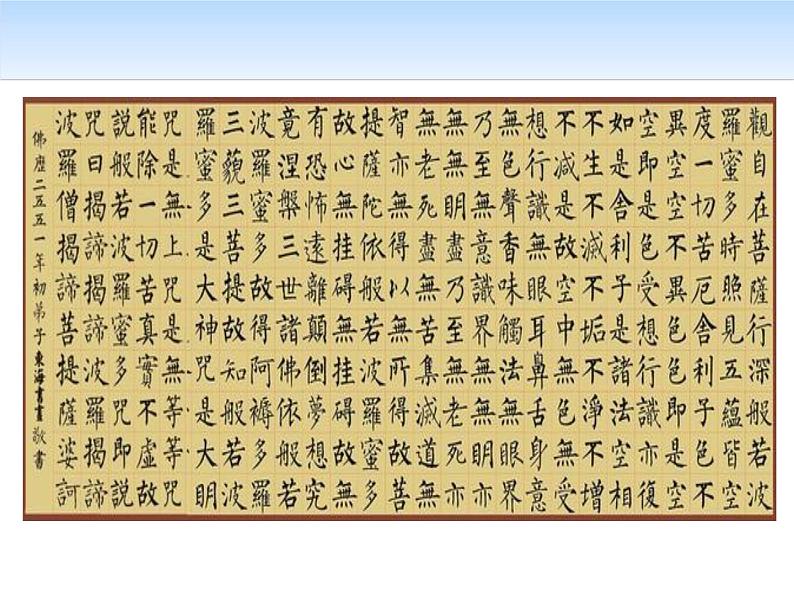 觀自在菩薩行深般若波
羅蜜多時照見五蘊皆空
度一切苦厄舍利子色不
異空空不異色色即是空
空即是色受想行識亦復
如是舍利子是諸法空相
不生不滅不垢不淨不增
不減是故空中無色無受
想行識無眼耳鼻舌身意
無色聲香味觸法無眼界
乃至無意識界無無明亦
無無明盡乃至無老死亦
無老死盡無苦集滅道無
智亦無得以無所得故菩
提薩陀依般若波羅蜜多
故心無挂碍無挂碍故無
有恐怖遠離顛倒夢想究
竟涅槃三世諸佛依般若
波羅蜜多故得阿褥多羅
三藐三菩提故知般若波
羅蜜多是大神咒是大明
咒是無上咒是無等等咒
能除一切苦真實不虛故
說般若波羅蜜多咒即說
咒曰揭諦揭諦波羅揭諦
波羅僧揭諦菩提薩婆訶
佛歷二五五一年初弟子東海書畫敬書